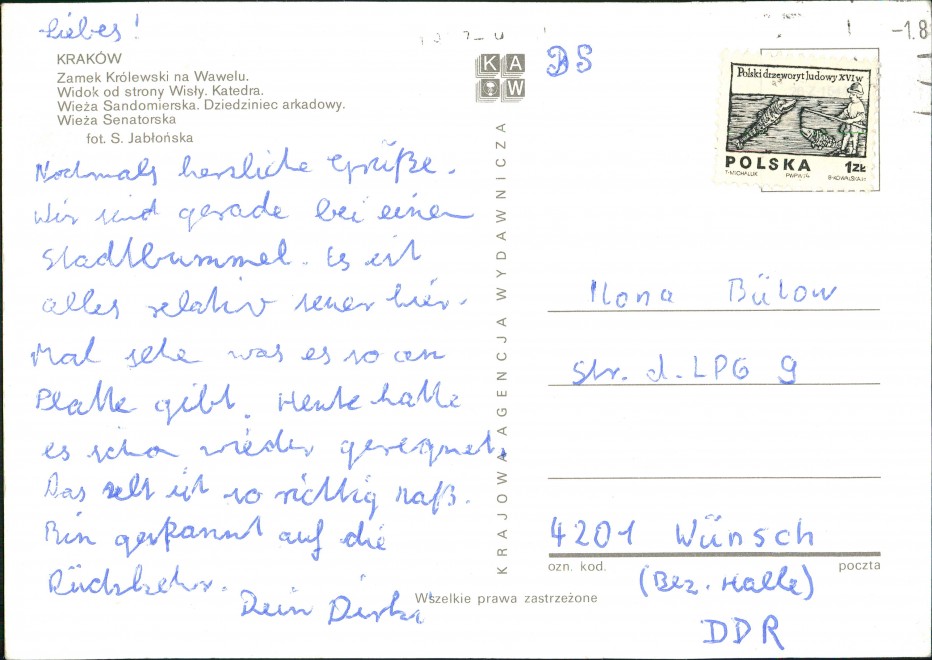 Liebes!
KRAKÓW
Zamek Królewski na Wawelu.
Widok od strony Wisły. Katedra.
Wieża Sandomierska. Dziedziniec arkadowy.
Wieża Senatorska
fot. S. Jabłońska
Nochmals herzliche Grüße.
Wir sind gerade bei einem
Stadtbummel. Es ist
alles relativ teuer hier.
Mal sehe was es so an
Platte gibt. Heute hatte
es schon wieder geregnet.
Das Zelt ist so richtig naß.
Bin gespannt auf die
Rückkehr.
Dein Dirk
KRAJOWA AGENCJA WYDAWNICZA
Wszelkie prawa zastrzeżone
KAW
BS
-1.8
Polski drzeworyt ludowy XVI w
POLSKA 1ZŁ
T·MICHALUK PWPW 74
Ilona Bülow
Str. d. LPG 9
4201 Wünsch
ozn. kod. poczta
(Bez. Halle)
DDR